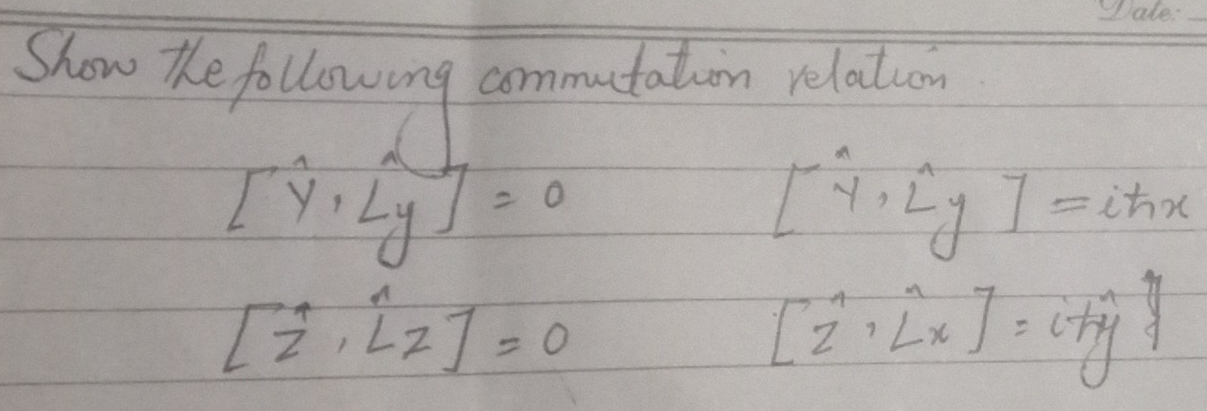 Date:
Show the following commutation relation.
[Ŷ, L̂y] = 0 [Ŷ, L̂y] = iħx
[Ẑ, L̂z] = 0 [Ẑ, L̂x] = iħŷ